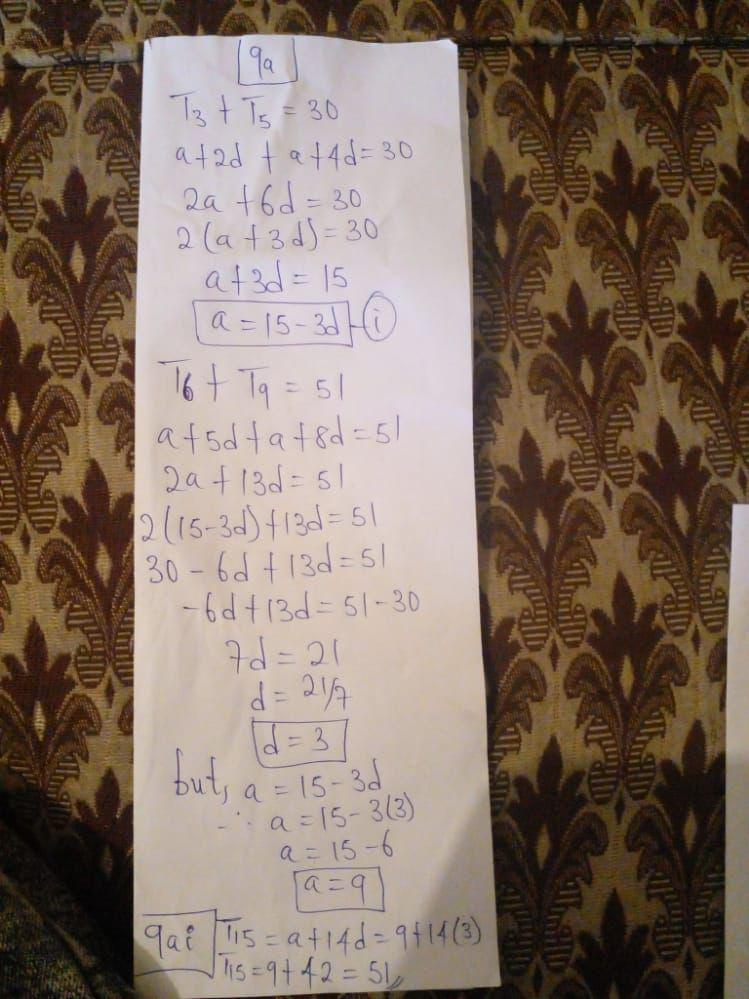 9a
T3 + T5 = 30
a+2d + a+4d=30
2a +6d = 30
2(a+3d)=30
a+3d = 15
a = 15-3d - i
T6 + T9 = 51
a+5d+a+8d=51
2a+13d=51
2(15-3d)+13d=51
30 - 6d +13d=51
-6d+13d=51-30
7d = 21
d= 21/7
d=3
but, a = 15-3d
∴ a = 15-3(3)
a = 15-6
a=9
9ai T15 = a+14d = 9+14(3)
T15=9+42 = 51,,